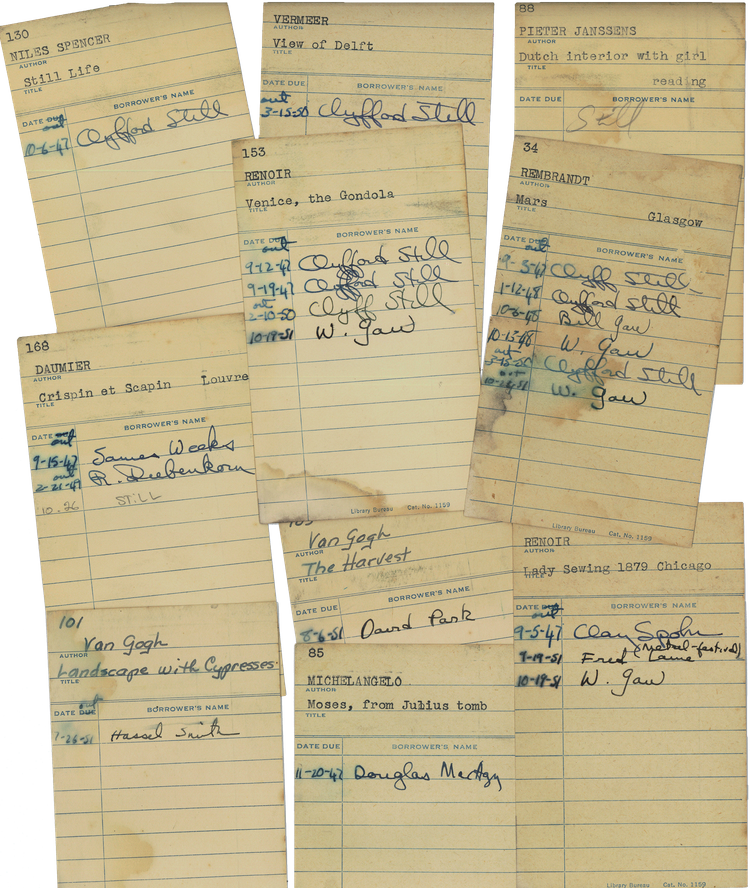 130
NILES SPENCER
AUTHOR
Still Life
TITLE
DATE out BORROWER'S NAME
out
10-6-47 Clyfford Still
VERMEER
AUTHOR
View of Delft
TITLE
DATE DUE BORROWER'S NAME
out
3-15-50 Clyfford Still
88
PIETER JANSSENS
AUTHOR
Dutch interior with girl
TITLE
reading
DATE DUE BORROWER'S NAME
Still
153
RENOIR
AUTHOR
Venice, the Gondola
TITLE
DATE DUE BORROWER'S NAME
out
9-12-47 Clyfford Still
9-19-47 Clyfford Still
out
2-10-50 Clyff Still
10-19-51 W. Gaw
34
REMBRANDT
AUTHOR
Mars
TITLE
Glasgow
DATE DUE BORROWER'S NAME
out
9-3-47 Clyff Still
1-12-48 Clyfford Still
10-6-48 Bill Gaw
10-13-48 W. Gaw
out
3-15-50 Clyfford Still
out
W. Gaw
Library Bureau Cat. No. 1159
168
DAUMIER
AUTHOR
Crispin et Scapin Louvre
TITLE
DATE out BORROWER'S NAME
out
9-15-47 James Weeks
out
2-21-49 R. Diebenkorn
10.26 STILL
Library Bureau Cat. No. 1159
Van Gogh
AUTHOR
The Harvest
TITLE
DATE DUE BORROWER'S NAME
8-6-51 David Park
RENOIR
AUTHOR
Lady Sewing 1879 Chicago
TITLE
DATE DUE BORROWER'S NAME
out
9-5-47 Clay Spohn
9-19-51 Fred
10-19-51 W. Gaw
Library Bureau Cat. No. 1159
101
Van Gogh
AUTHOR
Landscape with Cypresses.
TITLE
out
DATE DUE BORROWER'S NAME
7-26-51 Hassel Smith
85
MICHELANGELO
AUTHOR
Moses, from Julius tomb
TITLE
DATE DUE BORROWER'S NAME
11-20-47 Douglas MacAgy